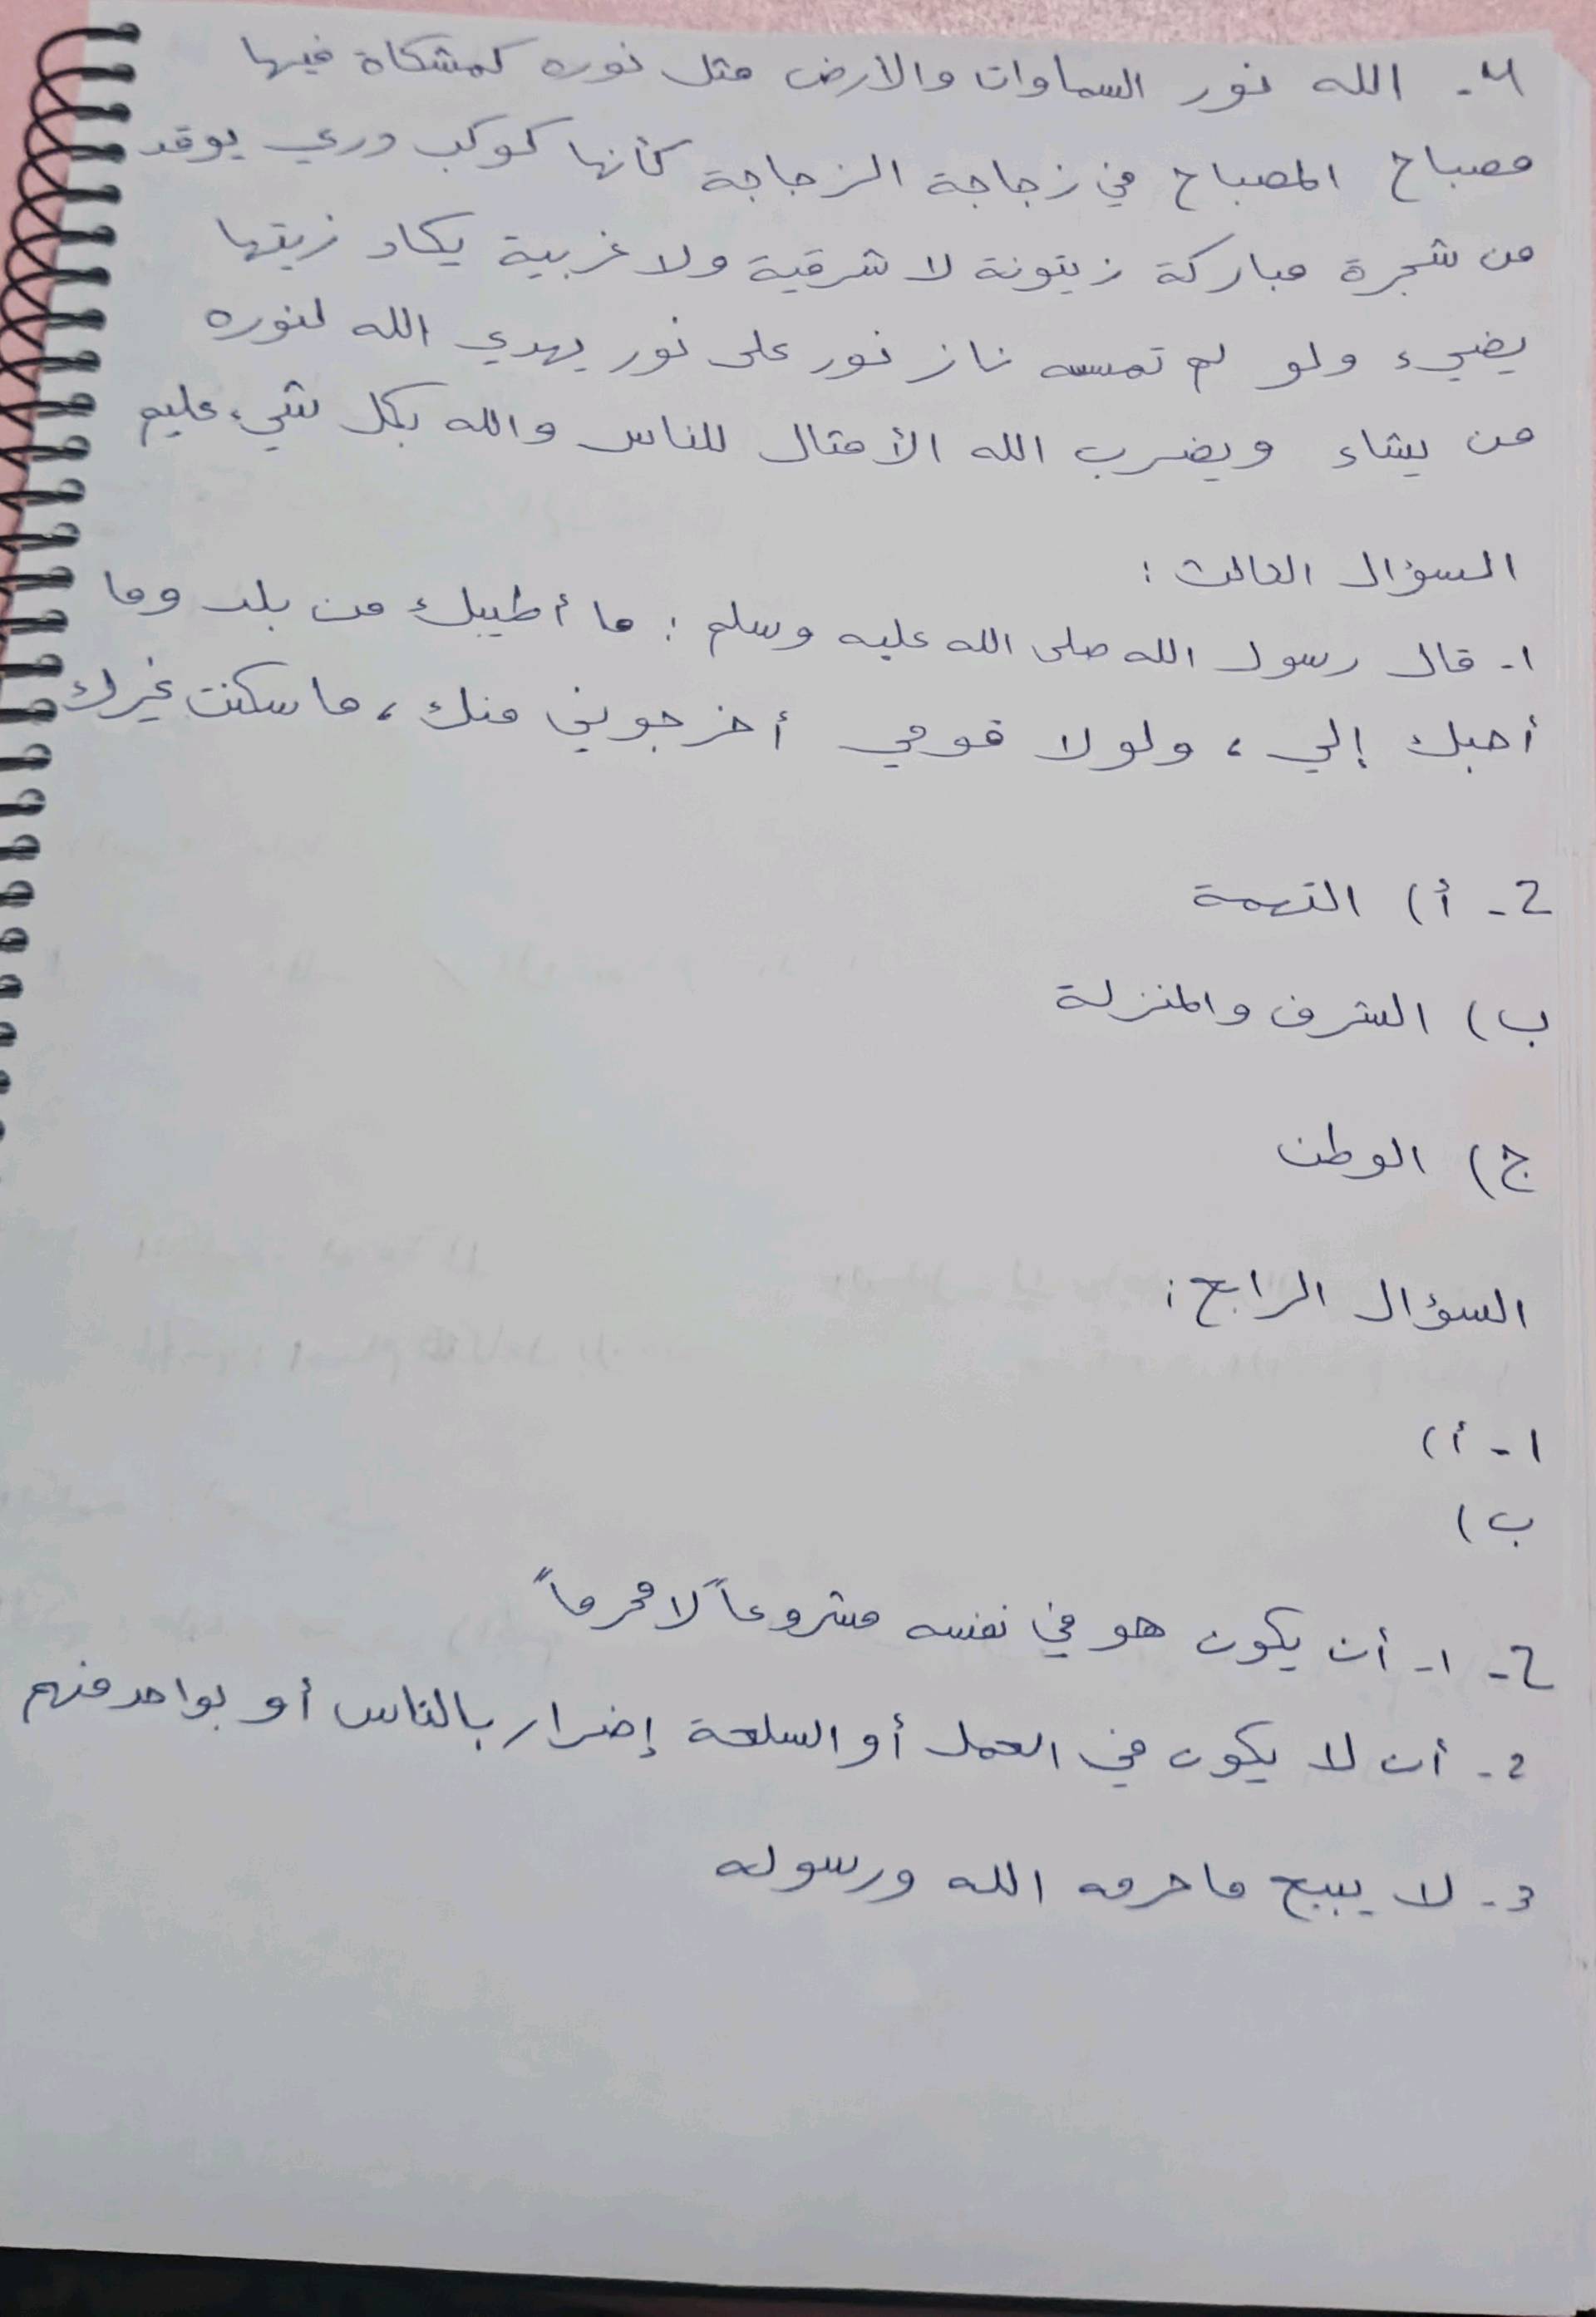 4- الله نور السماوات والارض مثل نوره كمشكاة فيها
مصباح المصباح في زجاجة الزجاجة كأنها كوكب دري يوقد
من شجرة مباركة زيتونة لا شرقية ولا غربية يكاد زيتها
يضيء ولو لم تمسسه نار نور على نور يهدي الله لنوره
من يشاء ويضرب الله الأمثال للناس والله بكل شيء عليم
السؤال الثالث :
1- قال رسول الله صلى الله عليه وسلم : ما أطيبك من بلد وما
أحبك إلي ، ولولا قومي أخرجوني منك ، ما سكنت غيرك
2- أ) التهمة
ب) الشرف والمنزلة
ج) الوطن
السؤال الرابع :
1- أ)
ب)
2- 1- أن يكون هو في نفسه مشروعاً لا محرماً
2- أن لا يكون في العمل أو السلعة إضرار بالناس أو بواحد منهم
3- لا يبيح ما حرمه الله ورسوله